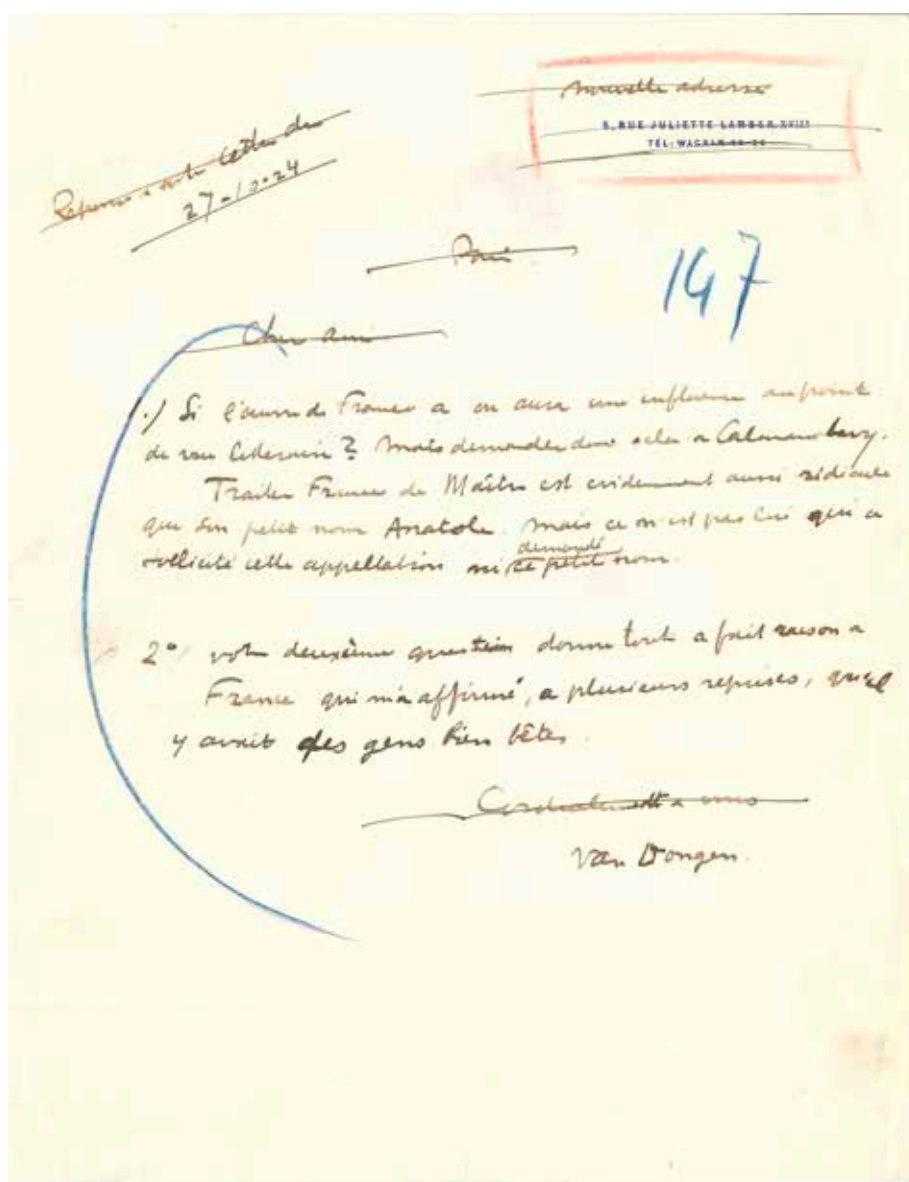 nouvelle adresse
5, RUE JULIETTE LAMBER, XVIIe
TÉL: WAGRAM
Reponse a votre lettre du
27-10-24
Paris
147
Cher ami
1.) Si l'œuvre de France a ou aura une influence au point
de vue litteraire? Mais demandez donc cela a Calmann Levy.
Traiter France de Maître est evidemment aussi ridicule
que son petit nom Anatole. Mais ce n'est pas lui qui a
sollicité cette appellation ni demandé ce petit nom.
2° votre deuxième question donne tout a fait raison a
France qui m'a affirmé, a plusieurs reprises, qu'il
y avait des gens bien bêtes.
Cordialement a vous
Van Dongen.